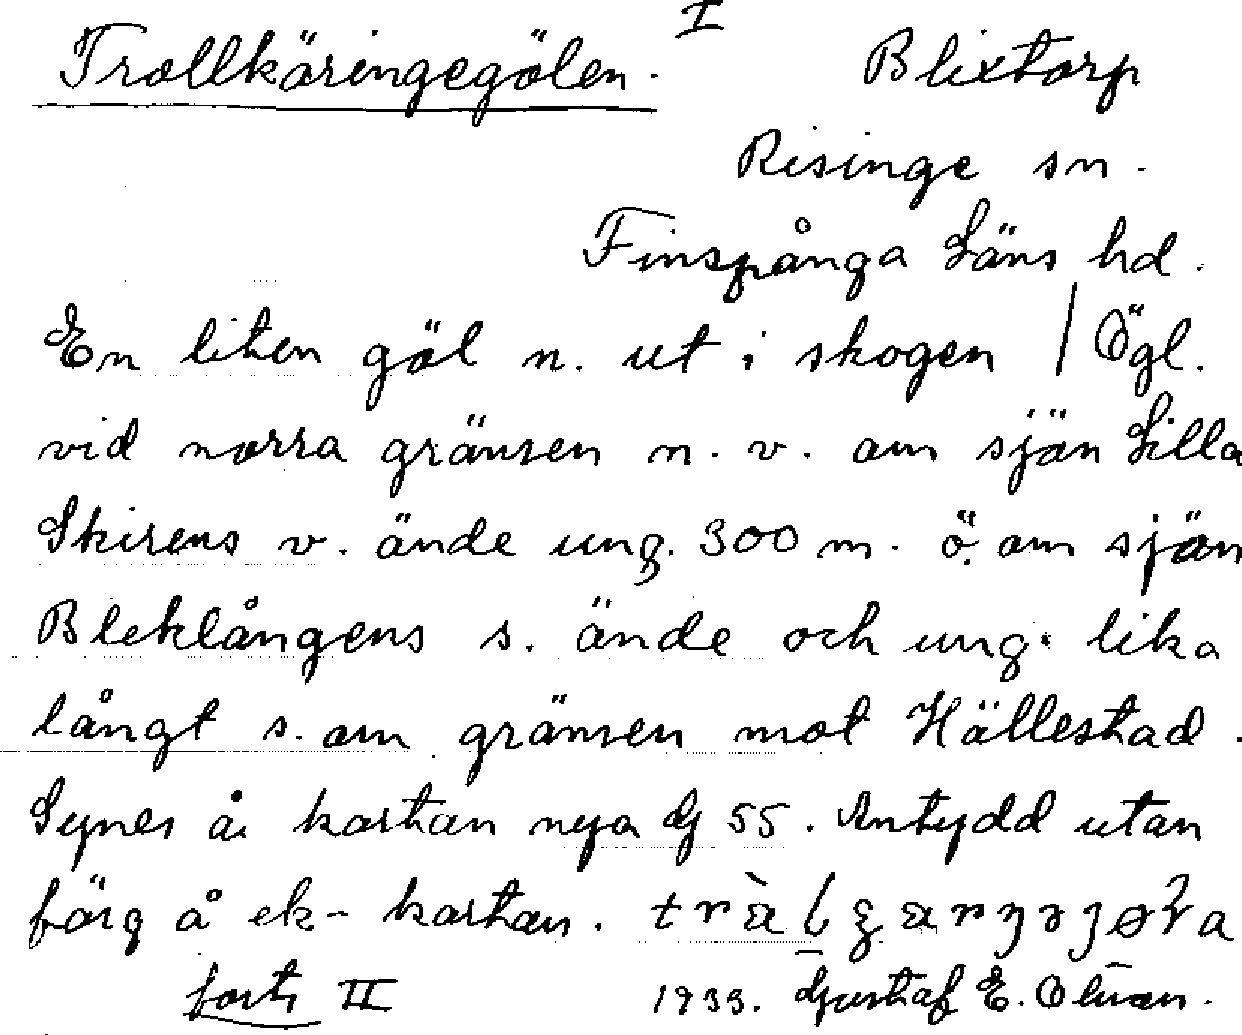 I
Trollkäringegölen. Blixtorp
Risinge sn.
Finspånga Läns hd.
En liten göl n. ut i skogen / Ögl.
vid norra gränsen n. v. om sjön Lilla
Skirens v. ände ung. 300 m. ö. om sjön
Bleklångens s. ände och ung. lika
långt s. om gränsen mot Hällestad.
Synes å kartan nya G 55. Antydd utan
färg å ek-kartan.
forts II 1933. Gustaf E. Olman.